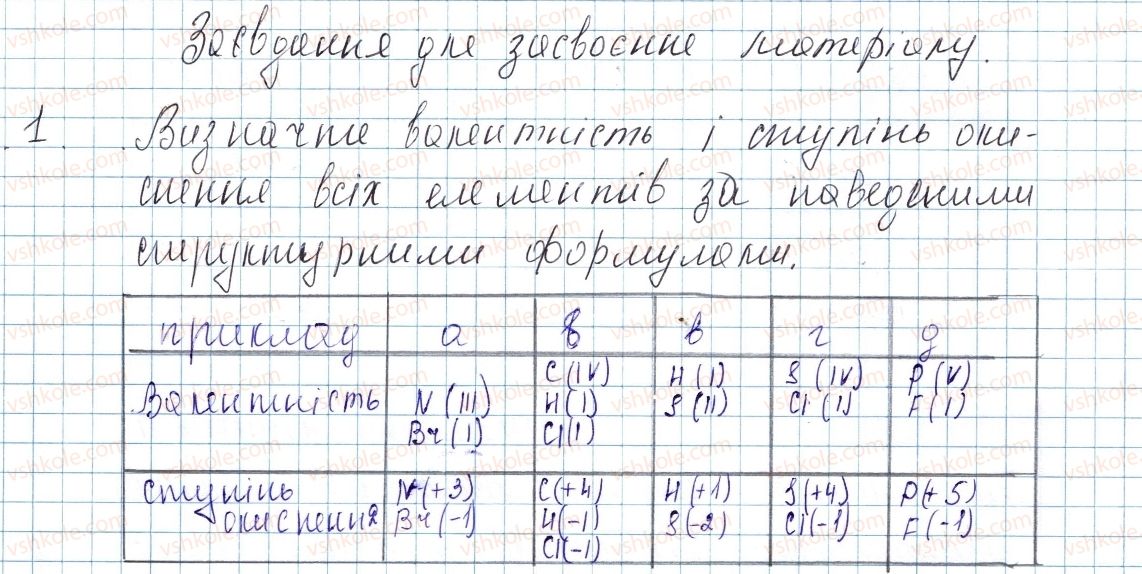 Завдання для засвоєння матеріалу.
1. Визначте валентність і ступінь оки-
снення всіх елементів за наведеними
структурними формулами.
приклад а б в г д
Валентність N (III) Br (I) C (IV) H (I) Cl (I) H (I) S (II) S (IV) Cl (I) P (V) F (I)
ступінь окиснення N (+3) Br (-1) C (+4) H (-1) Cl (-1) H (+1) S (-2) S (+4) Cl (-1) P (+5) F (-1)
vshkole.com